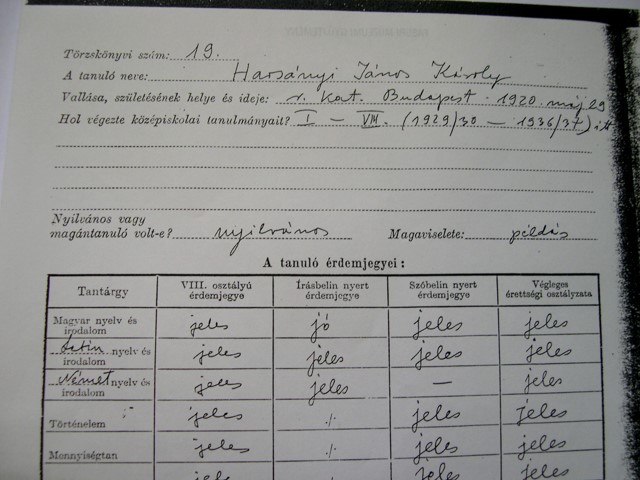 Törzskönyvi szám: 19.
A tanuló neve: Harsányi János Károly
Vallása, születésének helye és ideje: r. kat. Budapest 1920. máj 29
Hol végezte középiskolai tanulmányait? I – VIII. (1929/30 – 1936/37) itt
Nyilvános vagy
magántanuló volt-e? nyilvános Magaviselete: példás
A tanuló érdemjegyei:
Tantárgy VIII. osztályú érdemjegye Írásbelin nyert érdemjegye Szóbelin nyert érdemjegye Végleges érettségi osztályzata
Magyar nyelv és irodalom jeles jó jeles jeles
Latin nyelv és irodalom jeles jeles jeles jeles
Német nyelv és irodalom jeles jeles — jeles
Történelem jeles ./. jeles jeles
Mennyiségtan jeles ./. jeles jeles
jeles jeles jeles